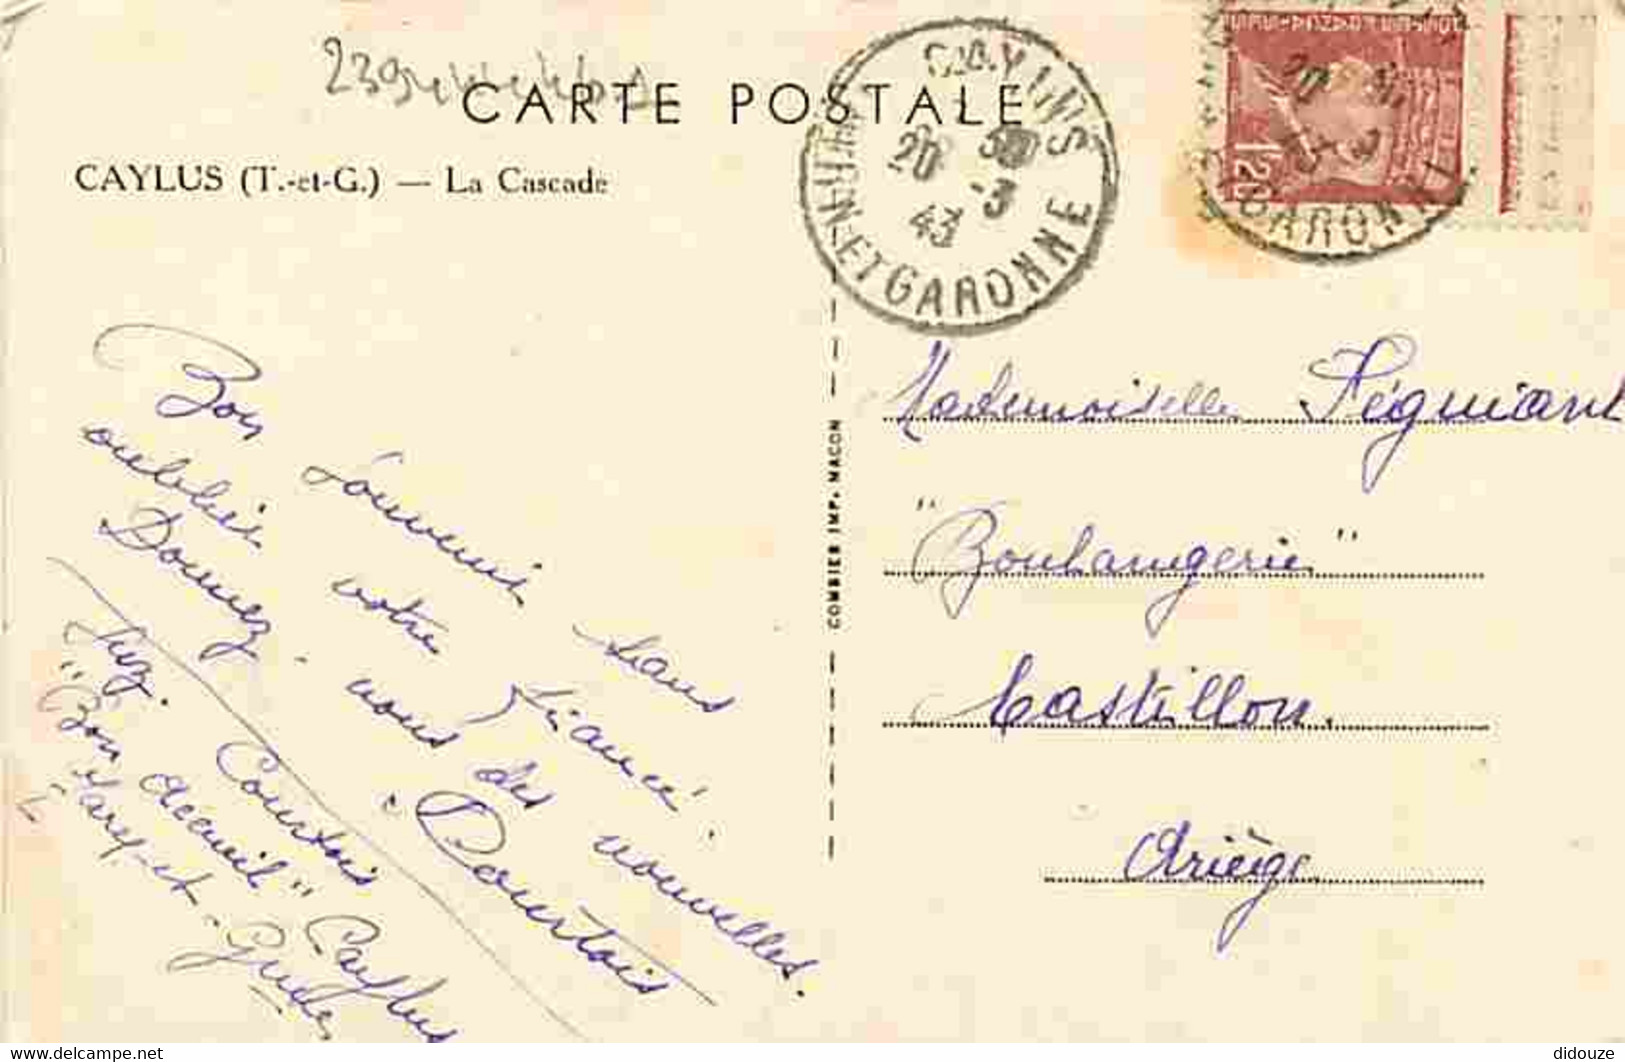 CARTE POSTALE
CAYLUS (T.-et-G.) — La Cascade
CAYLUS
20 30
-3
43
TARN-ET-GARONNE
1F20
GARONNE
COMBIER IMP. MACON
Bon souvenir sans
oublier votre fiancé.
Donnez-nous des nouvelles.
Courtois
Suz. Courtois
"Bon accueil" Caylus
Tarn-et-G
Mademoiselle Séguiant
"Boulangerie"
Castillon.
Ariège
delcampe.net
didouze